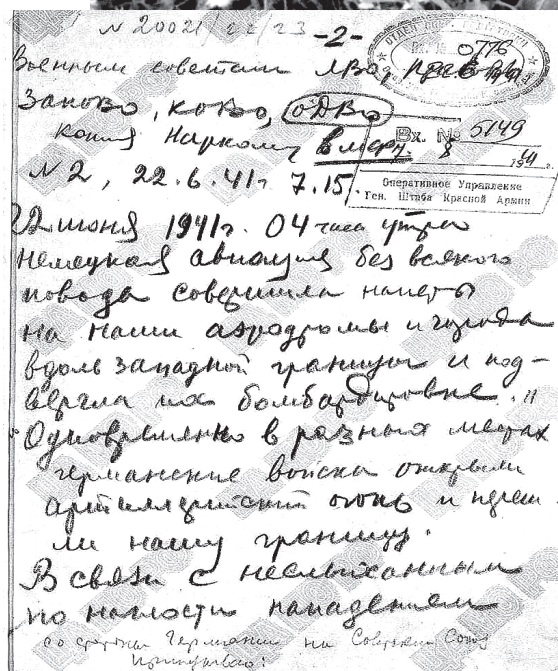 N 20021/22/23 -2-
Военным советам ЛВО, ПрибВО
ЗапОВО, КОВО, ОДВО
копия Наркому В.Мор.
ОТДЕЛ
Вх. № 0776
Вх. № 5149
8 1941 г.
Оперативное Управление
Ген. Штаба Красной Армии
N2, 22.6.41г 7.15.
22 июня 1941г. 04 часа утра
немецкая авиация без всякого
повода совершила налеты
на наши аэродромы и города
вдоль западной границы и под-
вергла их бомбардировке.
Одновременно в разных местах
германские войска открыли
артиллерийский огонь и переш-
ли нашу границу.
В связи с неслыханным
по наглости нападением
со стороны Германии на Советский Союз
приказываю: